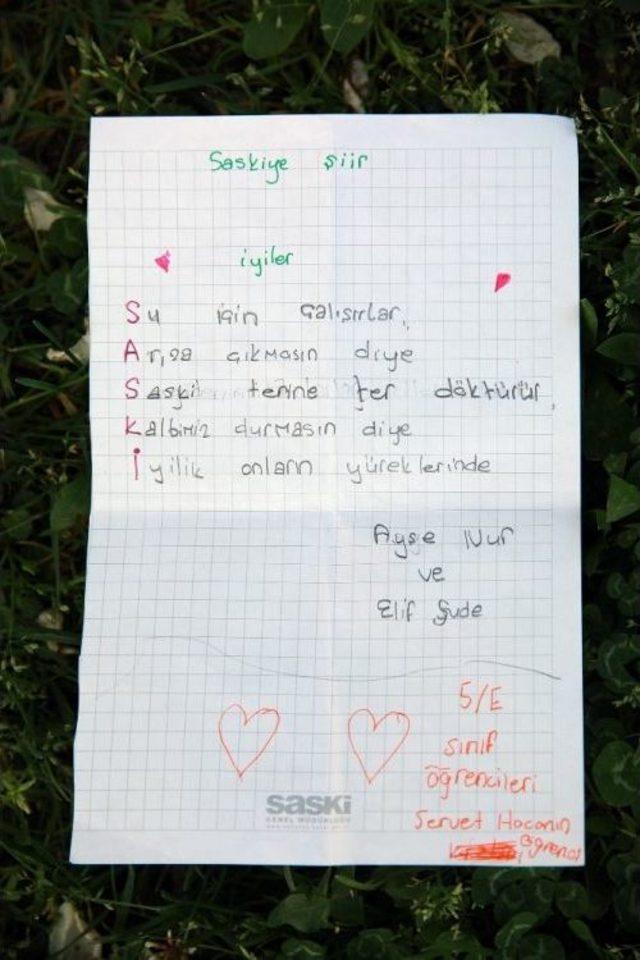 Saskiye şiir
iyiler
Su için çalışırlar,
Arıza çıkmasın diye
Saski terine ter döktürür,
Kalbimiz durmasın diye
İyilik onların yüreklerinde
Ayşe Nur
ve
Elif Şude
5/E
sınıf
öğrencileri
saski
GENEL MÜDÜRLÜĞÜ
Servet Hocanın